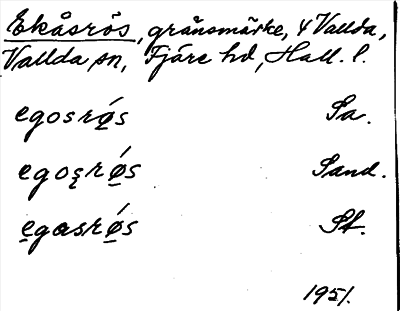 Ekåsrös, gränsmärke, 4 Vallda,
Vallda sn, Fjäre hd, Hall. l.
egosrǿ̱s Sa.
egoş̱rǿ̱s Sand.
e̱gasrǿ̱s St.
1951.